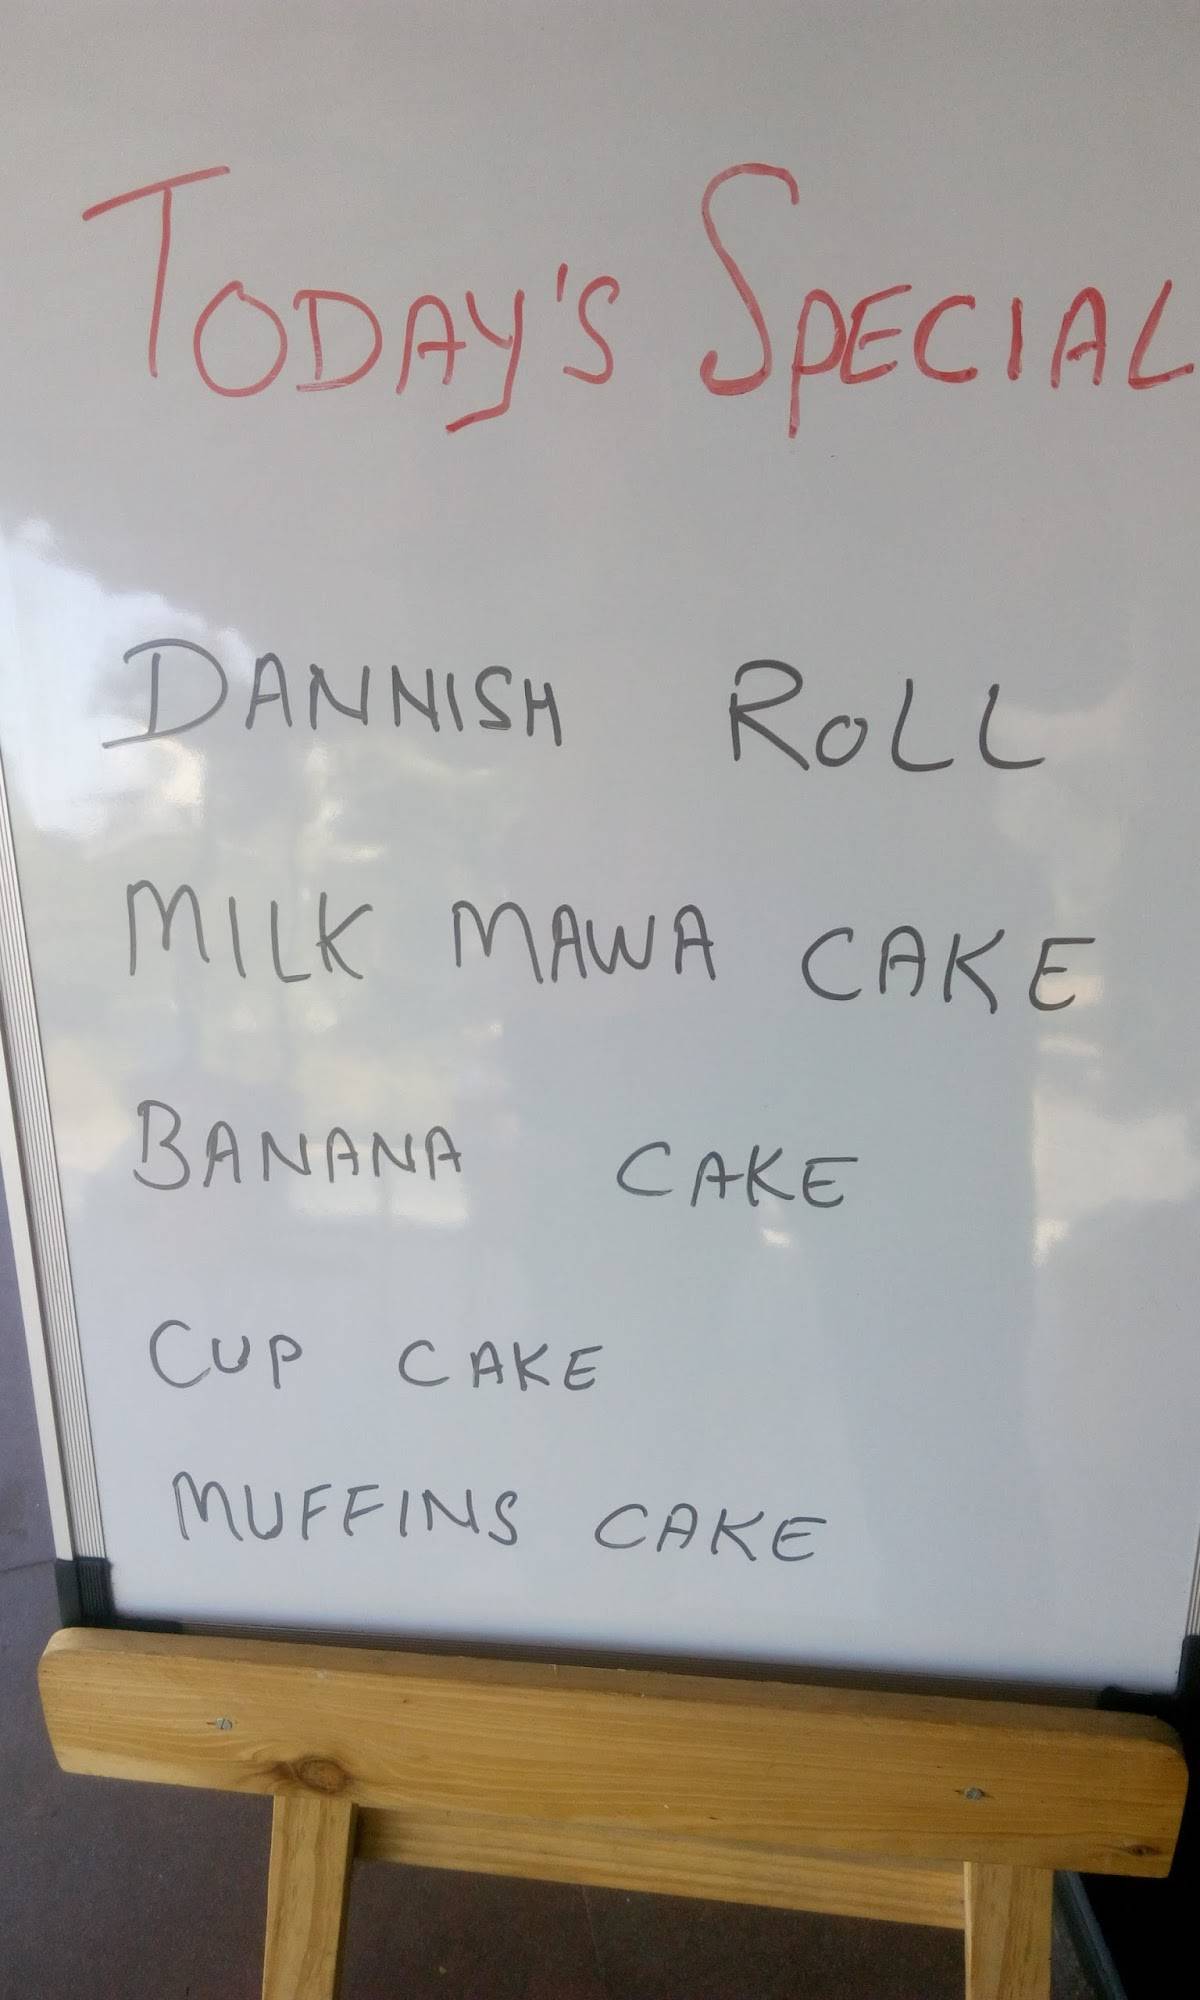 TODAY'S SPECIAL
DANNISH ROLL
MILK MAWA CAKE
BANANA CAKE
CUP CAKE
MUFFINS CAKE